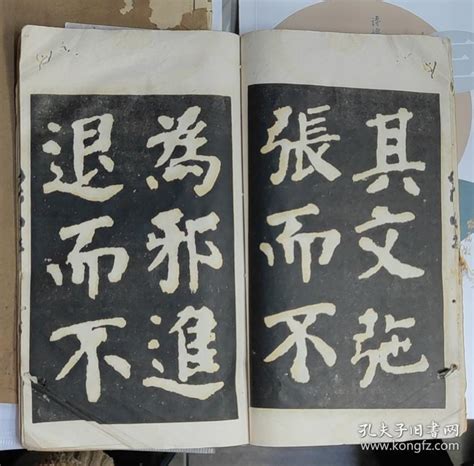 其文弛
張而不
為邪進
退而不
孔夫子旧书网
www.kongfz.com